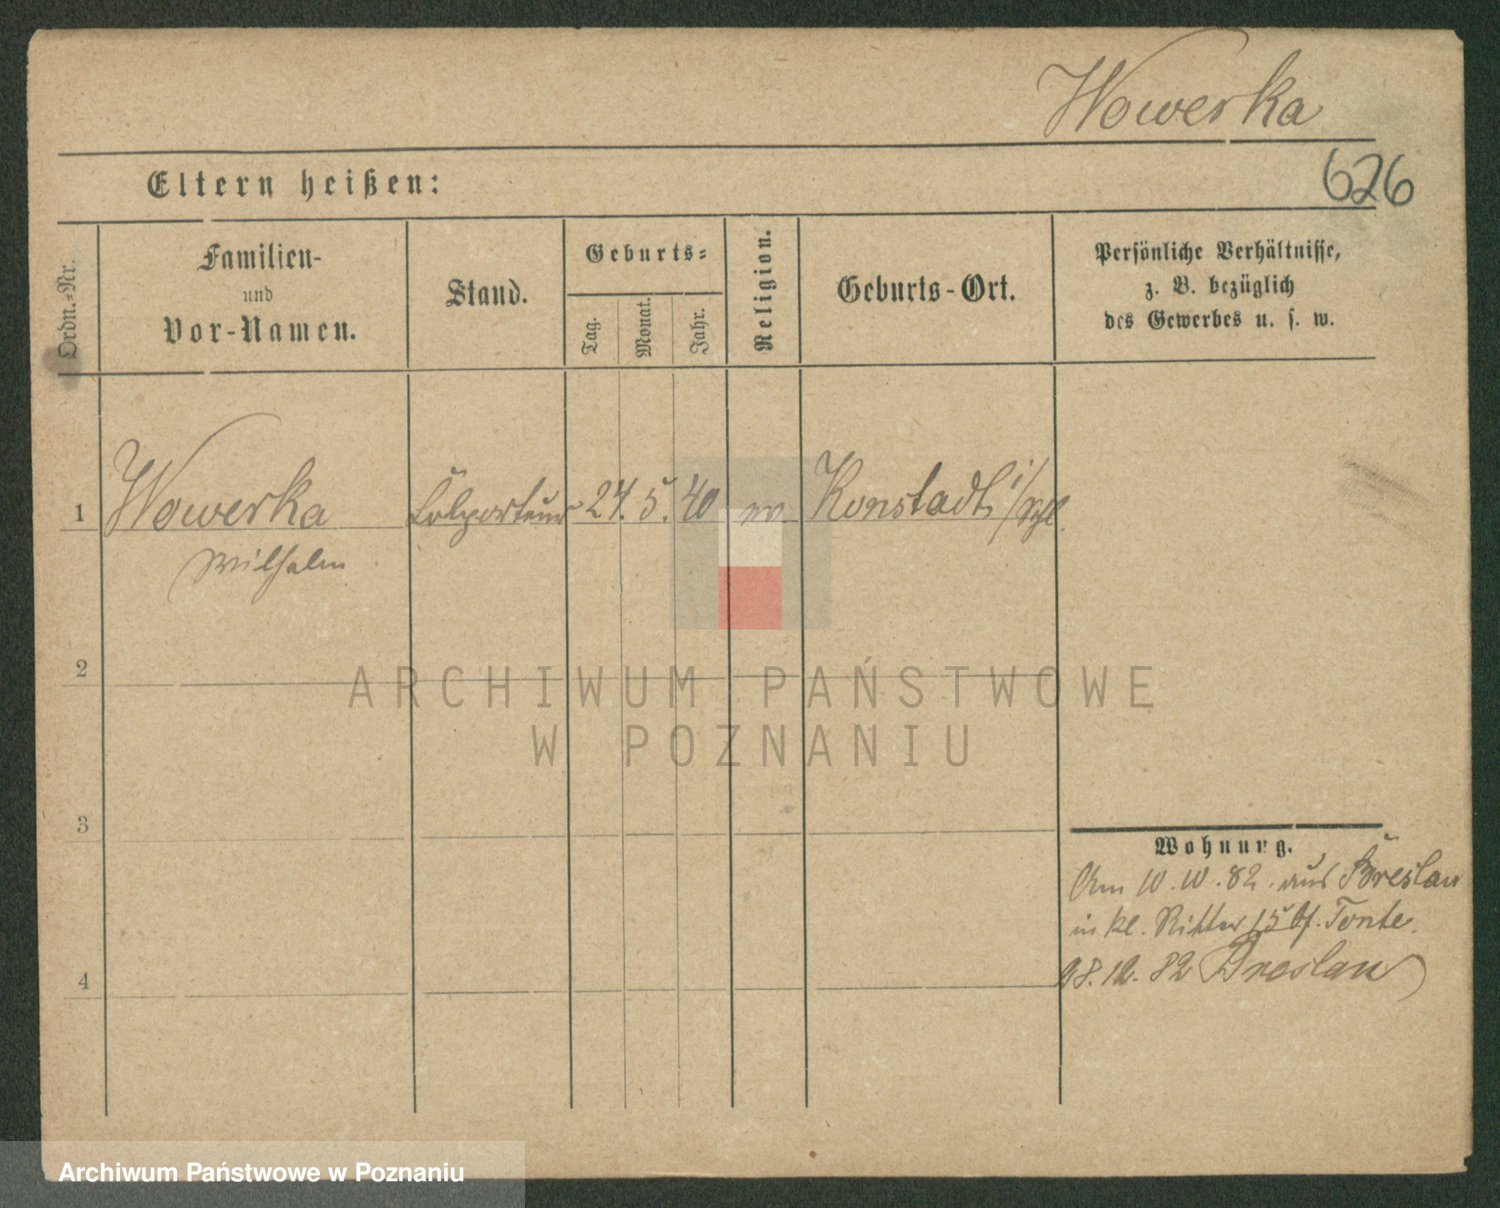 Wowerka
626
Eltern heißen:
Ordn.-Nr.
Familien-
und
Vor-Namen.
Stand.
Geburts-
Tag.
Monat.
Jahr.
Religion.
Geburts-Ort.
Persönliche Verhältnisse,
z. B. bezüglich
des Gewerbes u. s. w.
1 Wowerka Colporteur 24. 5. 40 ev. Konstadt i/Schl.
Wilhelm
2
ARCHIWUM PAŃSTWOWE
W POZNANIU
3
Wohnung.
Am 10.10.82. aus Breslau
in kl. Ritter 15 bf. Tonte.
28.12.82 Breslau
4
Archiwum Państwowe w Poznaniu